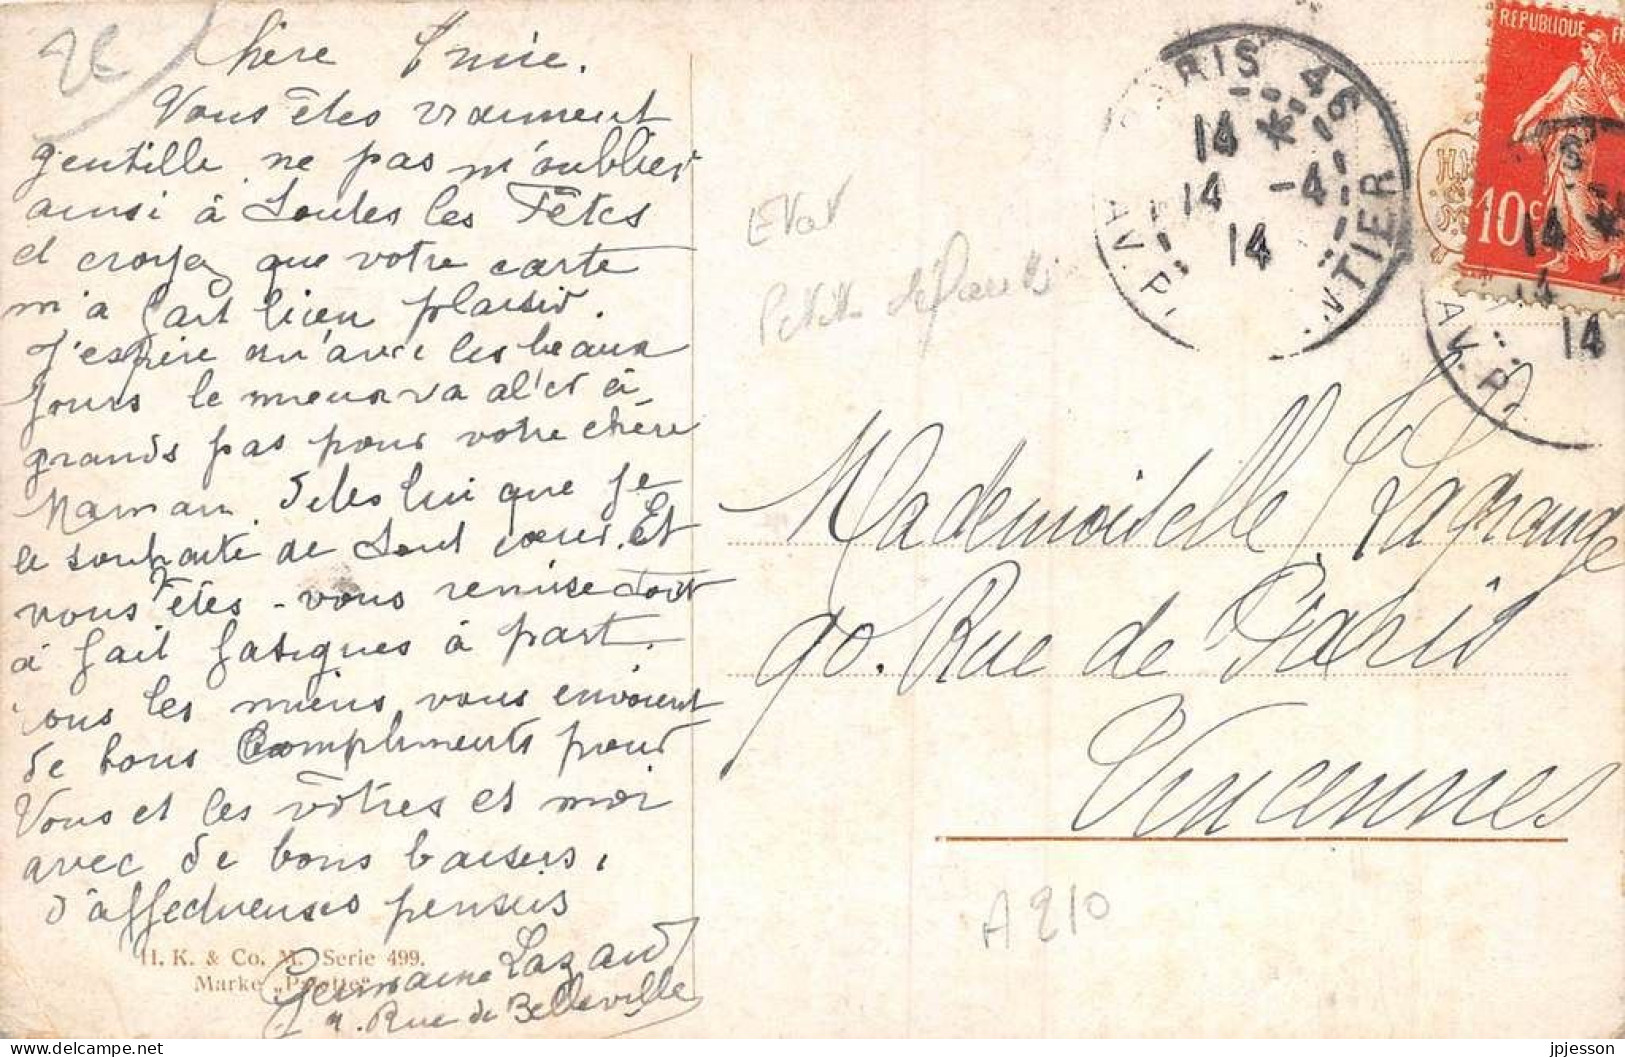 2€
Chère Amie.
Vous êtes vraiment
gentille ne pas m'oublier
ainsi à toutes les Fêtes
et croyez que votre carte
m'a fait bien plaisir.
J'espère qu'avec les beaux
jours le mieux va aller à
grands pas pour votre chère
Maman. Dites lui que je
le souhaite de tout cœur. Et
vous êtes-vous remise tout
à fait fatigues à part.
tous les miens vous envoient
de bons Compliments pour
Vous et les vôtres et moi
avec de bons baisers,
d'affectueuses pensées
Germaine Lazard
Rue de Belleville
H. K. & Co. M. Serie 499.
Marke „Palette"
Etat
Petit
PARIS 46
14 *
14 -4
14
AV. P NTIER
RÉPUBLIQUE FR
10c
S
14
14
14
AV. P
Mademoiselle Lagrange
90. Rue de Paris
Vincennes
A 210
pjesson